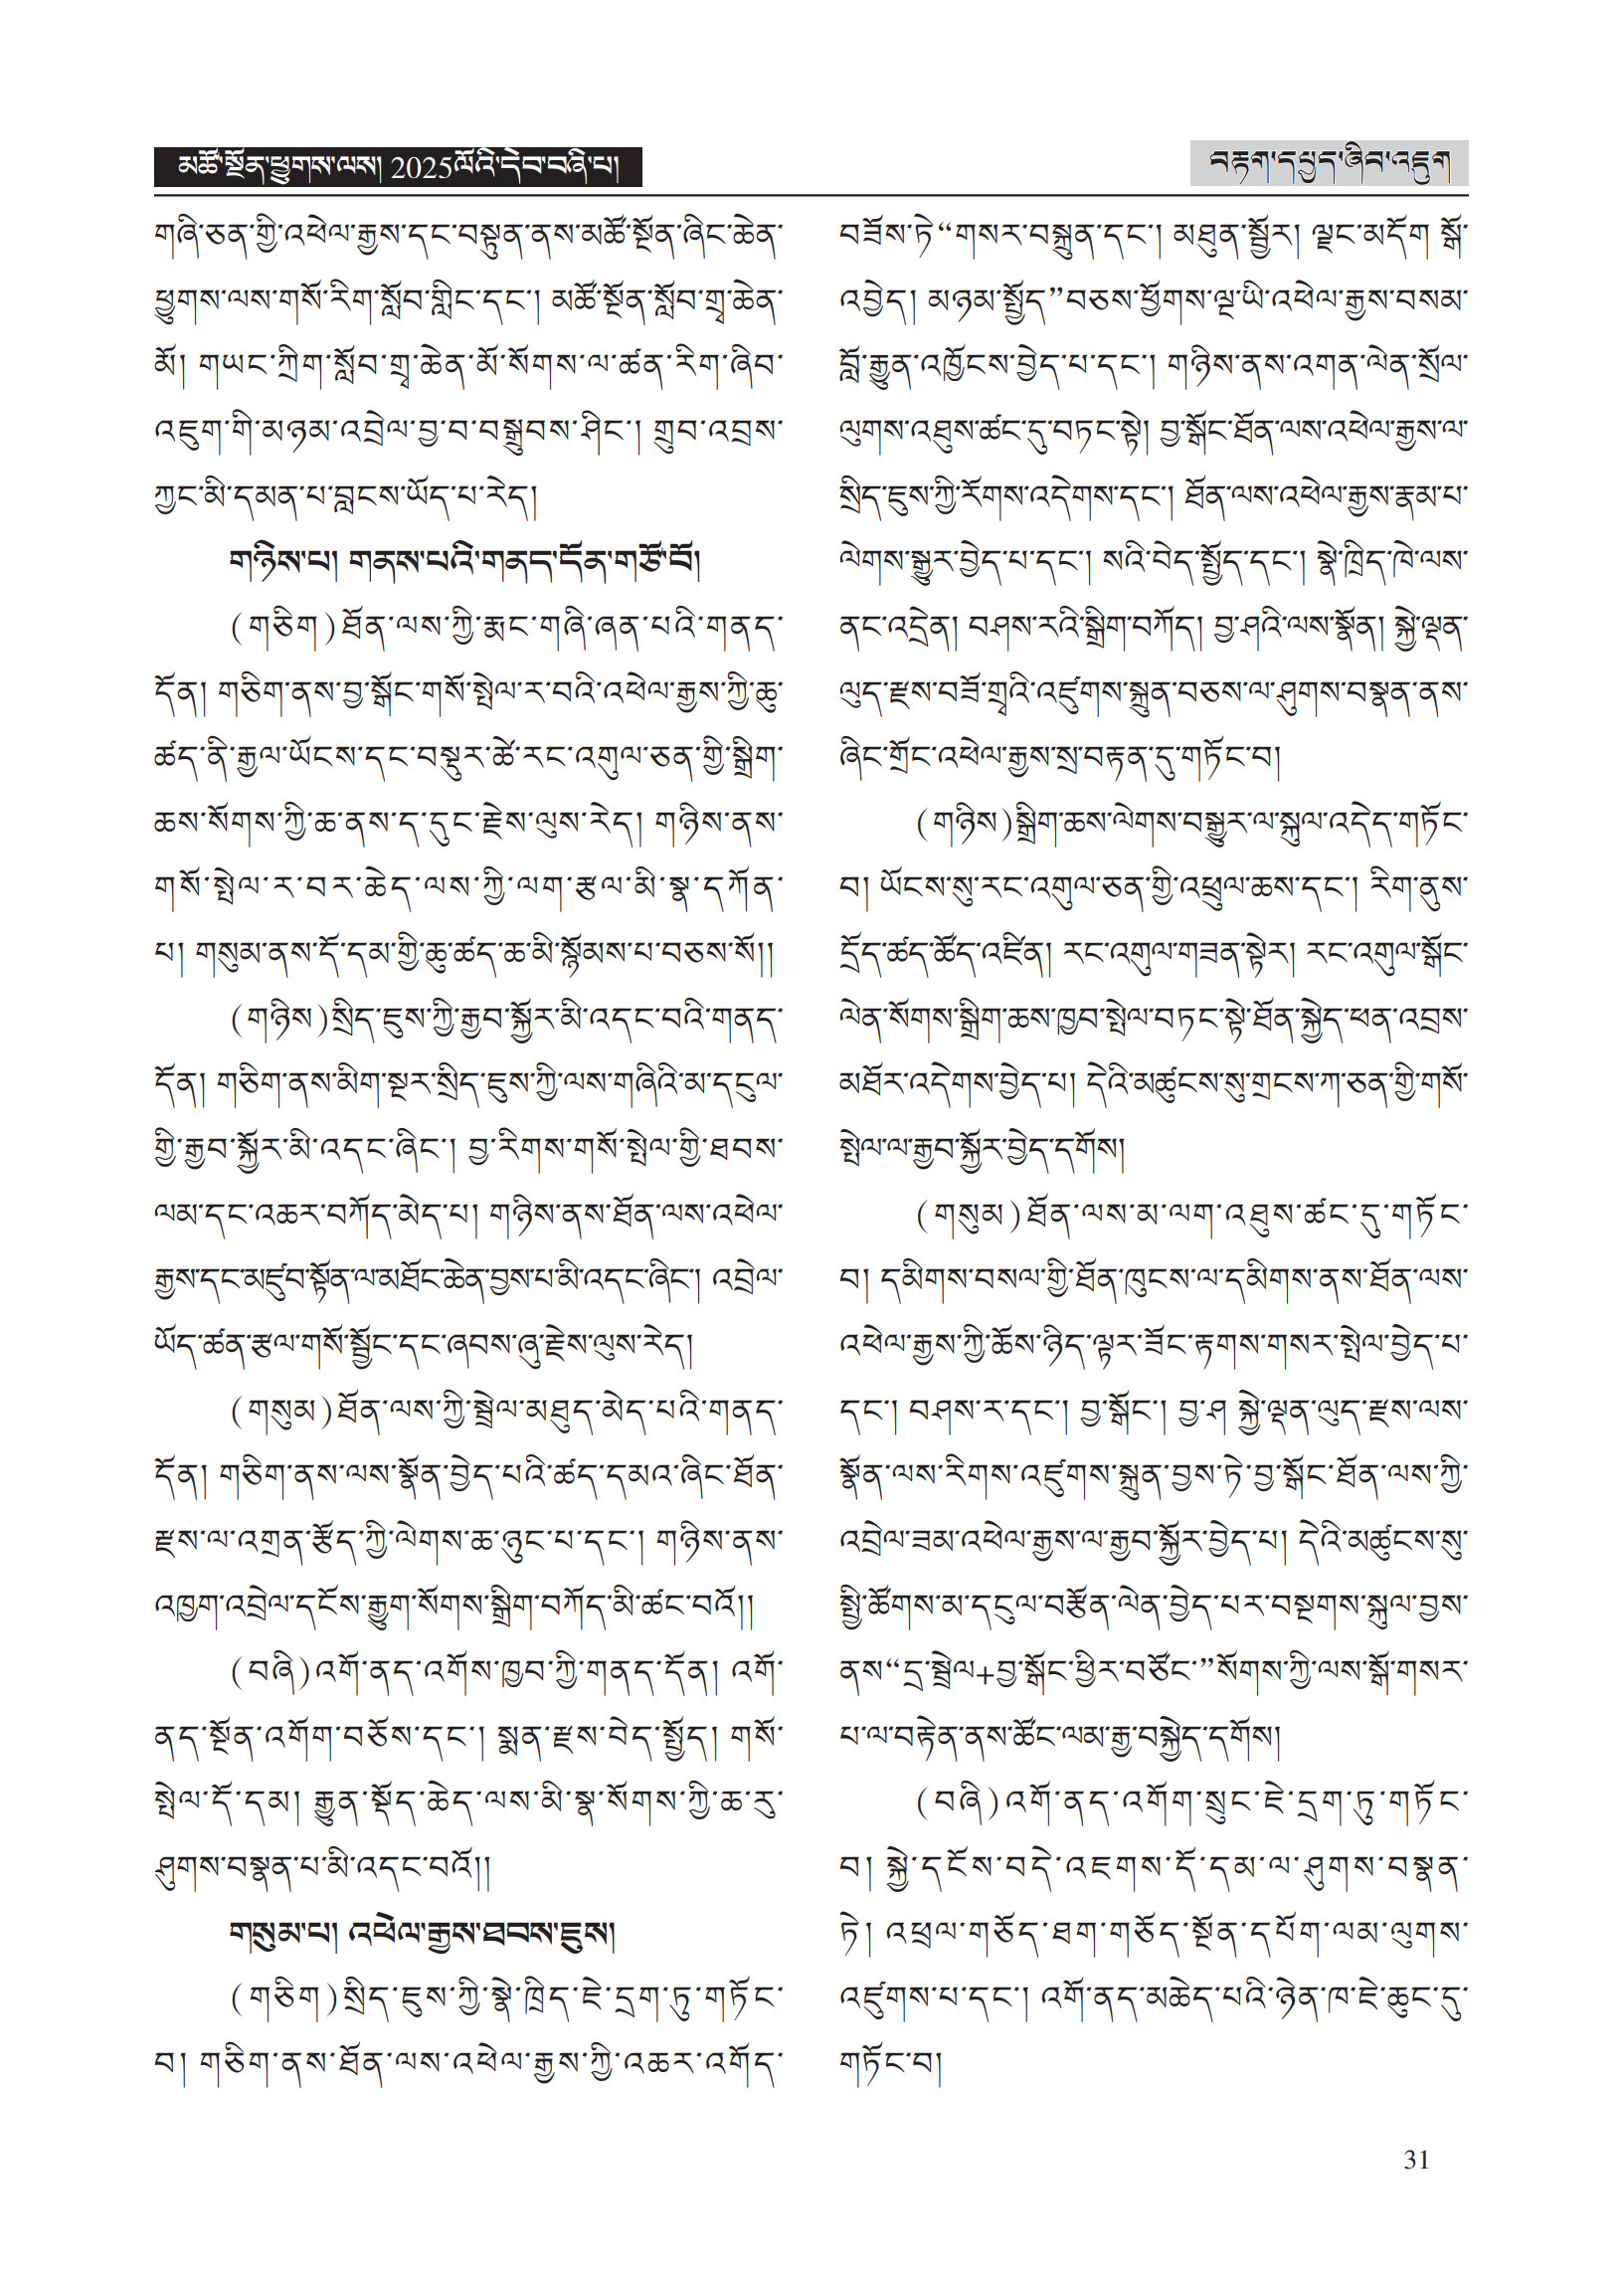 མཚོ་སྔོན་ཕྱུགས་ལས། 2025ལོའི་དེབ་བཞི་པ།
བརྟག་དཔྱད་ཞིབ་འཇུག
གཞི་ཅན་གྱི་འཕེལ་རྒྱས་དང་བསྟུན་ནས་མཚོ་སྔོན་ཞིང་ཆེན་
ཕྱུགས་ལས་གསོ་རིག་སློབ་གླིང་དང་། མཚོ་སྔོན་སློབ་གྲྭ་ཆེན་
མོ། གཡང་ཀྲིག་སློབ་གྲྭ་ཆེན་མོ་སོགས་ལ་ཚན་རིག་ཞིབ་
འཇུག་གི་མཉམ་འབྲེལ་བྱ་བ་བསྒྲུབས་ཤིང་། གྲུབ་འབྲས་
ཀྱང་མི་དམན་པ་བླངས་ཡོད་པ་རེད།
གཉིས་པ། གནས་པའི་གནད་དོན་གཙོ་བོ།
(གཅིག)ཐོན་ལས་ཀྱི་རྨང་གཞི་ཞན་པའི་གནད་
དོན། གཅིག་ནས་བྱ་སྒོང་གསོ་སྤེལ་ར་བའི་འཕེལ་རྒྱས་ཀྱི་ཆུ་
ཚད་ནི་རྒྱལ་ཡོངས་དང་བསྡུར་ཚེ་རང་འགུལ་ཅན་གྱི་སྒྲིག་
ཆས་སོགས་ཀྱི་ཆ་ནས་ད་དུང་རྗེས་ལུས་རེད། གཉིས་ནས་
གསོ་སྤེལ་ར་བར་ཆེད་ལས་ཀྱི་ལག་རྩལ་མི་སྣ་དཀོན་
པ། གསུམ་ནས་དོ་དམ་གྱི་ཆུ་ཚད་ཆ་མི་སྙོམས་པ་བཅས་སོ།།
(གཉིས)སྲིད་ཇུས་ཀྱི་རྒྱབ་སྐྱོར་མི་འདང་བའི་གནད་
དོན། གཅིག་ནས་མིག་སྔར་སྲིད་ཇུས་ཀྱི་ལས་གཞིའི་མ་དངུལ་
གྱི་རྒྱབ་སྐྱོར་མི་འདང་ཞིང་། བྱ་རིགས་གསོ་སྤེལ་གྱི་ཐབས་
ལམ་དང་འཆར་བཀོད་མེད་པ། གཉིས་ནས་ཐོན་ལས་འཕེལ་
རྒྱས་དང་མཛུབ་སྟོན་ལ་མཐོང་ཆེན་བྱས་པ་མི་འདང་ཞིང་། འབྲེལ་
ཡོད་ཚན་རྩལ་གསོ་སྦྱོང་དང་ཞབས་ཞུ་རྗེས་ལུས་རེད།
(གསུམ)ཐོན་ལས་ཀྱི་སྦྲེལ་མཐུད་མེད་པའི་གནད་
དོན། གཅིག་ནས་ལས་སྣོན་བྱེད་པའི་ཚད་དམའ་ཞིང་ཐོན་
རྫས་ལ་འགྲན་རྩོད་ཀྱི་ལེགས་ཆ་ཉུང་པ་དང་། གཉིས་ནས་
འཁྱག་འབྲེལ་དངོས་རྒྱུག་སོགས་སྒྲིག་བཀོད་མི་ཚང་བའོ།།
(བཞི)འགོ་ནད་འགོས་ཁྱབ་ཀྱི་གནད་དོན། འགོ་
ནད་སྔོན་འགོག་བཅོས་དང་། སྨན་རྫས་བེད་སྤྱོད། གསོ་
སྤེལ་དོ་དམ། རྒྱུན་སྡོད་ཆེད་ལས་མི་སྣ་སོགས་ཀྱི་ཆ་རུ་
ཤུགས་བསྣན་པ་མི་འདང་བའོ།།
གསུམ་པ། འཕེལ་རྒྱས་ཐབས་ཇུས།
(གཅིག)སྲིད་ཇུས་ཀྱི་སྣེ་ཁྲིད་ཇེ་དྲག་ཏུ་གཏོང་
བ། གཅིག་ནས་ཐོན་ལས་འཕེལ་རྒྱས་ཀྱི་འཆར་འགོད་
བཟོས་ཏེ“གསར་བསྐྲུན་དང་། མཐུན་སྦྱོར། ལྗང་མདོག སྒོ་
འབྱེད། མཉམ་སྤྱོད”བཅས་ཕྱོགས་ལྔ་ཡི་འཕེལ་རྒྱས་བསམ་
བློ་རྒྱུན་འཁྱོངས་བྱེད་པ་དང་། གཉིས་ནས་འགན་ལེན་སྲོལ་
ལུགས་འཐུས་ཚང་དུ་བཏང་སྟེ། བྱ་སྒོང་ཐོན་ལས་འཕེལ་རྒྱས་ལ་
སྲིད་ཇུས་ཀྱི་རོགས་འདེགས་དང་། ཐོན་ལས་འཕེལ་རྒྱས་རྣམ་པ་
ལེགས་སྒྱུར་བྱེད་པ་དང་། སའི་བེད་སྤྱོད་དང་། སྣེ་ཁྲིད་ཁེ་ལས་
ནང་འདྲེན། བཤས་རའི་སྒྲིག་བཀོད། བྱ་ཤའི་ལས་སྣོན། སྐྱེ་ལྡན་
ལུད་རྫས་བཟོ་གྲྭའི་འཛུགས་སྐྲུན་བཅས་ལ་ཤུགས་བསྣན་ནས་
ཞིང་གྲོང་འཕེལ་རྒྱས་སྲ་བརྟན་དུ་གཏོང་བ།
(གཉིས)སྒྲིག་ཆས་ལེགས་བསྒྱུར་ལ་སྐུལ་འདེད་གཏོང་
བ། ཡོངས་སུ་རང་འགུལ་ཅན་གྱི་འཕྲུལ་ཆས་དང་། རིག་ནུས་
དྲོད་ཚད་ཚོད་འཛིན། རང་འགུལ་གཟན་སྟེར། རང་འགུལ་སྒོང་
ལེན་སོགས་སྒྲིག་ཆས་ཁྱབ་སྤེལ་བཏང་སྟེ་ཐོན་སྐྱེད་ཕན་འབྲས་
མཐོར་འདེགས་བྱེད་པ། དེའི་མཚུངས་སུ་གྲངས་ཀ་ཅན་གྱི་གསོ་
སྤེལ་ལ་རྒྱབ་སྐྱོར་བྱེད་དགོས།
(གསུམ)ཐོན་ལས་མ་ལག་འཐུས་ཚང་དུ་གཏོང་
བ། དམིགས་བསལ་གྱི་ཐོན་ཁུངས་ལ་དམིགས་ནས་ཐོན་ལས་
འཕེལ་རྒྱས་ཀྱི་ཆོས་ཉིད་ལྟར་ཟོང་རྟགས་གསར་སྤེལ་བྱེད་པ་
དང་། བཤས་ར་དང་། བྱ་སྒོང་། བྱ་ཤ སྐྱེ་ལྡན་ལུད་རྫས་ལས་
སྣོན་ལས་རིགས་འཛུགས་སྐྲུན་བྱས་ཏེ་བྱ་སྒོང་ཐོན་ལས་ཀྱི་
འབྲེལ་ཟམ་འཕེལ་རྒྱས་ལ་རྒྱབ་སྐྱོར་བྱེད་པ། དེའི་མཚུངས་སུ་
སྤྱི་ཚོགས་མ་དངུལ་བརྩོན་ལེན་བྱེད་པར་བསྔགས་སྐུལ་བྱས་
ནས“དྲ་སྦྲེལ+བྱ་སྒོང་ཕྱིར་བཙོང་”སོགས་ཀྱི་ལས་སྒོ་གསར་
པ་ལ་བརྟེན་ནས་ཚོང་ལམ་རྒྱ་བསྐྱེད་དགོས།
(བཞི)འགོ་ནད་འགོག་སྲུང་ཇེ་དྲག་ཏུ་གཏོང་
བ། སྐྱེ་དངོས་བདེ་འཇགས་དོ་དམ་ལ་ཤུགས་བསྣན་
ཏེ། འཕྲལ་གཅོད་ཐག་གཅོད་སྔོན་དཔོག་ལམ་ལུགས་
འཛུགས་པ་དང་། འགོ་ནད་མཆེད་པའི་ཉེན་ཁ་ཇེ་ཆུང་དུ་
གཏོང་བ།
31